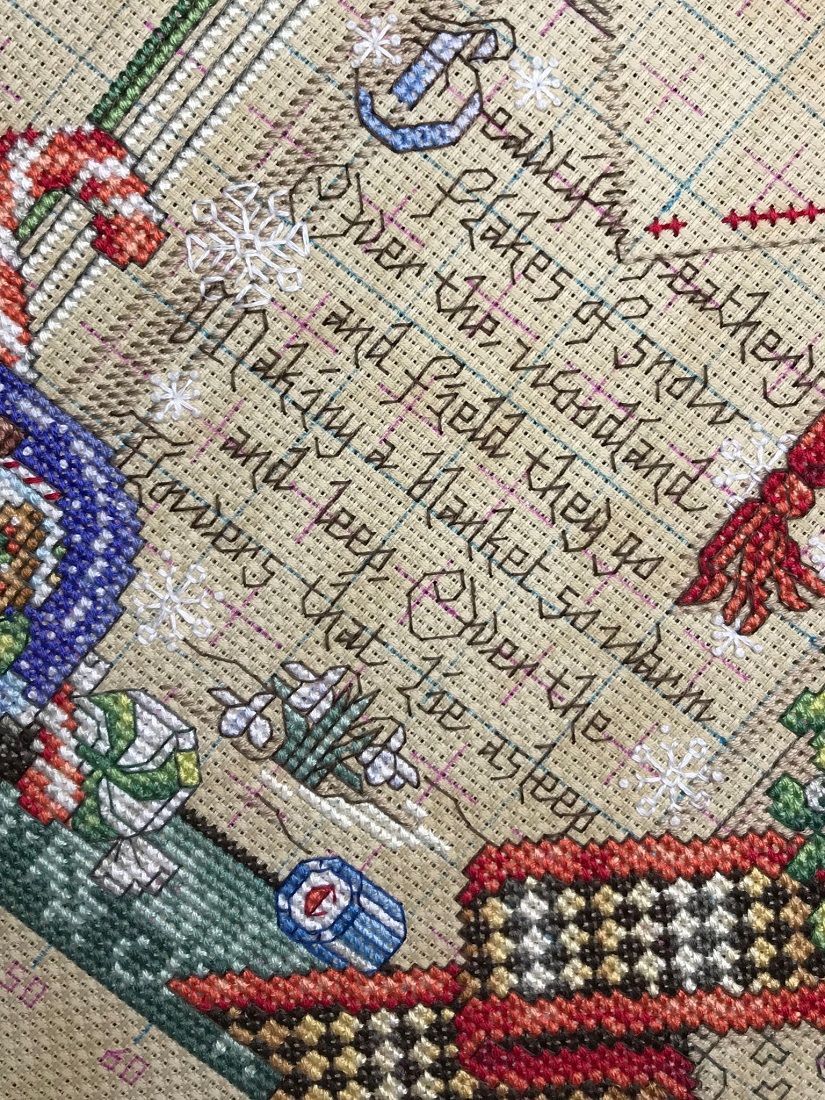 Beautiful feathery
flakes of snow
Over the woodland
and field they go
Making a blanket so warm
and deep Over the
flowers that lie asleep
50
60